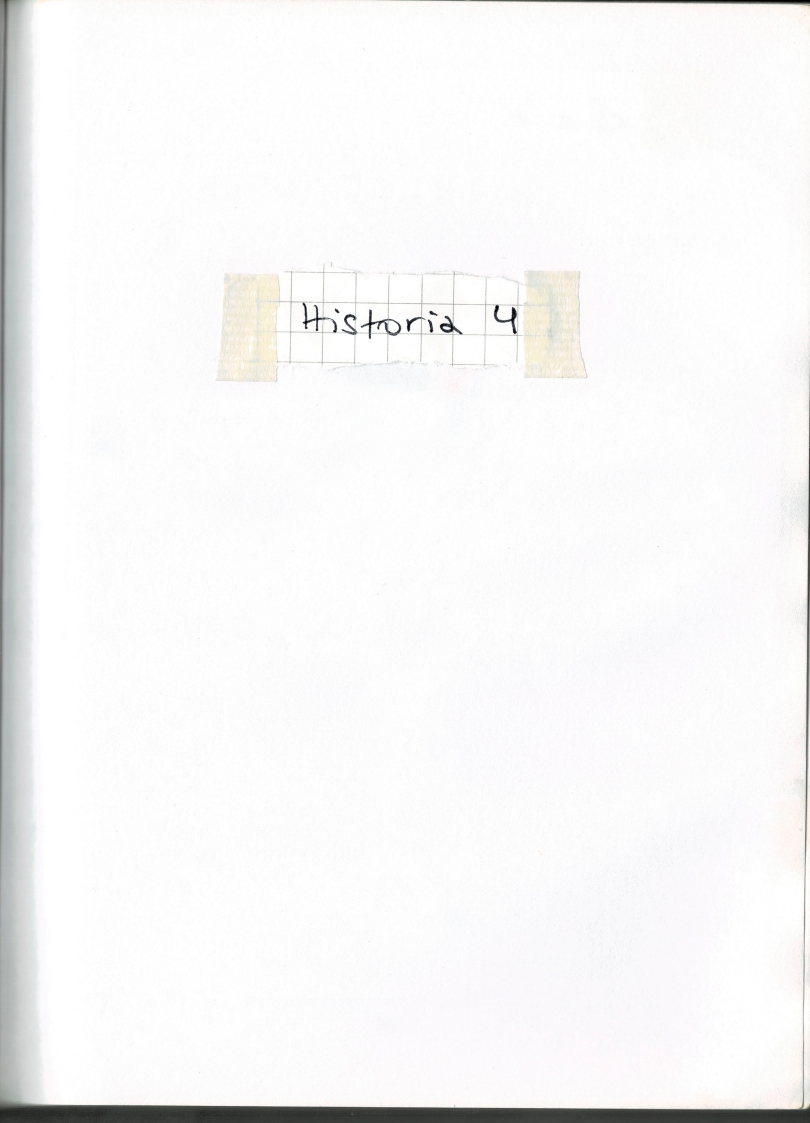 Historia 4